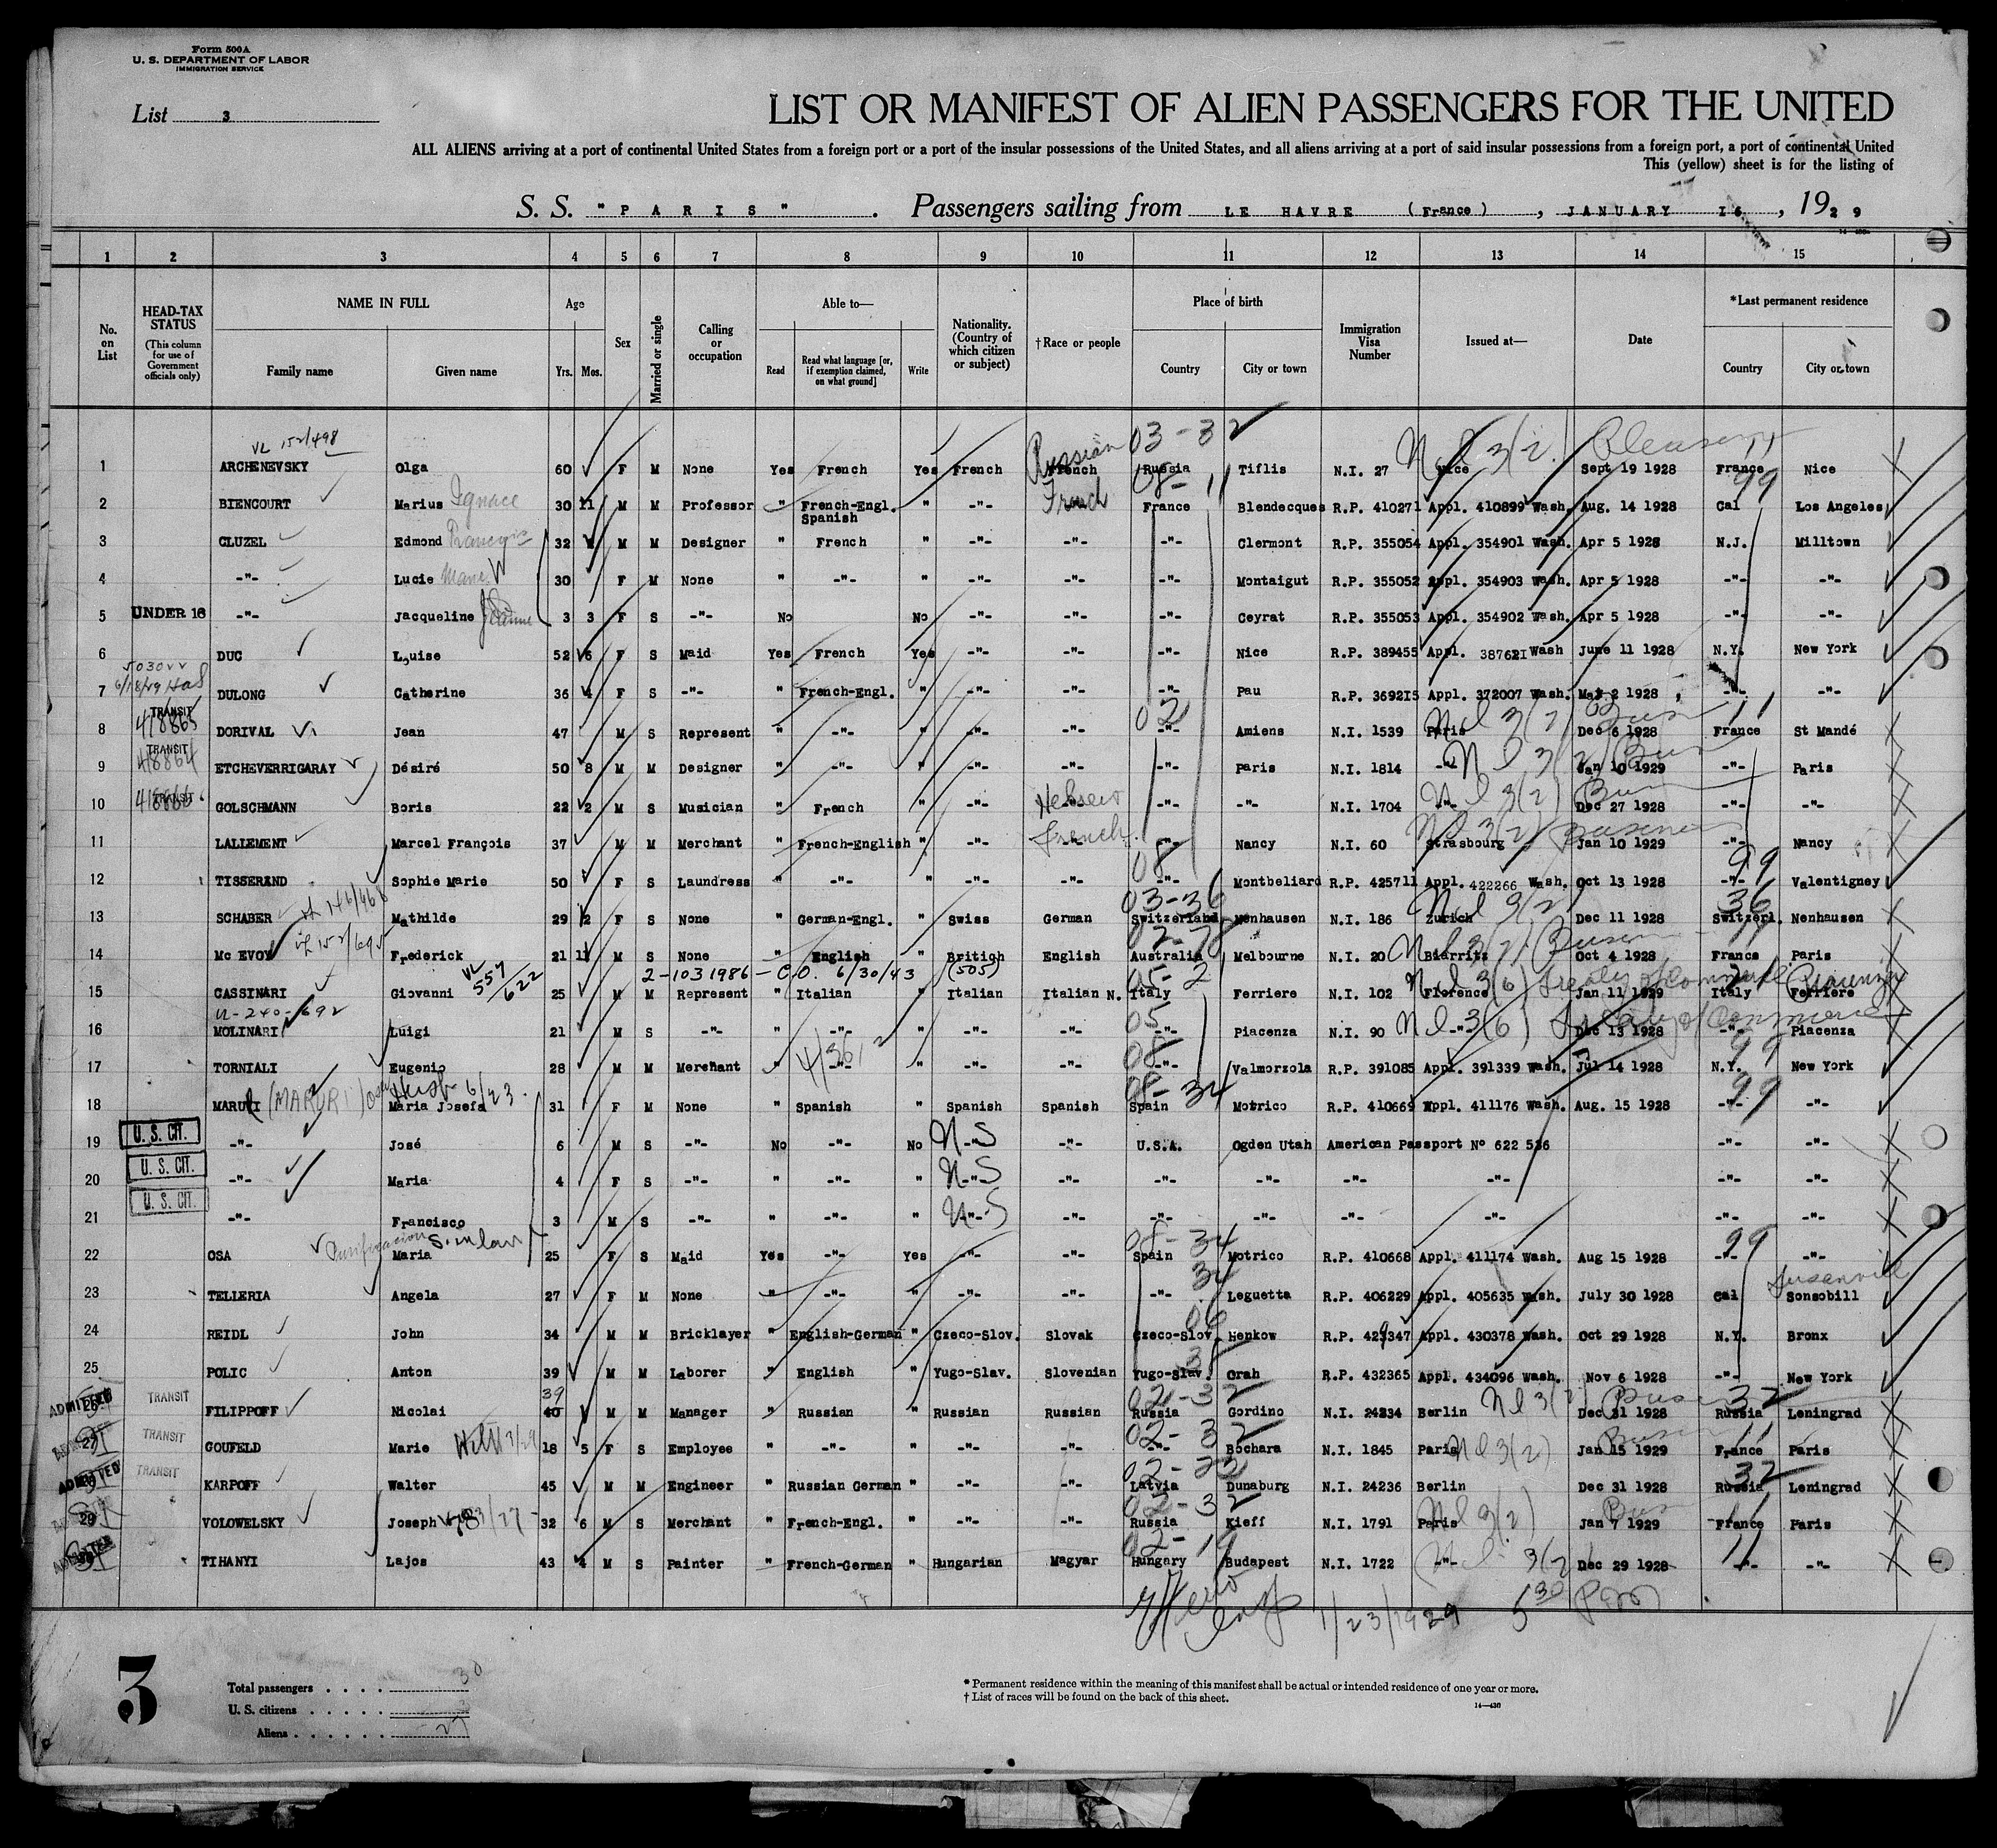 Form 500A
U. S. DEPARTMENT OF LABOR
IMMIGRATION SERVICE
List 3
LIST OR MANIFEST OF ALIEN PASSENGERS FOR THE UNITED
ALL ALIENS arriving at a port of continental United States from a foreign port or a port of the insular possessions of the United States, and all aliens arriving at a port of said insular possessions from a foreign port, a port of continental United
This (yellow) sheet is for the listing of
S. S. "PARIS". Passengers sailing from LE HAVRE (France), JANUARY 16, 1929
1 2 3 4 5 6 7 8 9 10 11 12 13 14 15
No. on List
HEAD-TAX STATUS (This column for use of Government officials only)
NAME IN FULL Family name Given name
Age Yrs. Mos.
Sex
Married or single
Calling or occupation
Able to— Read Read what language [or, if exemption claimed, on what ground] Write
Nationality. (Country of which citizen or subject)
†Race or people
Place of birth Country City or town
Immigration Visa Number
Issued at—
Date
*Last permanent residence Country City or town
VL 152/498 Russian 03-32
1 ARCHENEVSKY Olga 60 F M None Yes French Yes French French Russia Tiflis N.I. 27 Nice Sept 19 1928 France Nice
2 BIENCOURT Marius Ignace 30 11 M M Professor " French-Engl. Spanish " -"- French France Blendecques R.P. 410271 Appl. 410899 Wash. Aug. 14 1928 Cal Los Angeles
3 CLUZEL Edmond François 32 M M Designer " French " -"- -"- -"- Clermont R.P. 355054 Appl. 354901 Wash. Apr 5 1928 N.J. Milltown
4 -"- Lucie Marie W 30 F M None " -"- " -"- -"- -"- Montaigut R.P. 355052 Appl. 354903 Wash. Apr 5 1928 -"- -"-
5 UNDER 16 -"- Jacqueline Jeanne 3 3 F S -"- No No -"- -"- -"- Ceyrat R.P. 355053 Appl. 354902 Wash. Apr 5 1928 -"- -"-
6 DUC Louise 52 6 F S Maid Yes French Yes -"- -"- -"- Nice R.P. 389455 Appl. 387621 Wash June 11 1928 N.Y. New York
7 DULONG Catherine 36 4 F S -"- " French-Engl. " -"- -"- -"- Pau R.P. 369215 Appl. 372007 Wash. May 2 1928 -"- -"-
8 TRANSIT 418863 DORIVAL Jean 47 M S Represent " -"- " -"- -"- -"- Amiens N.I. 1539 Paris Dec 6 1928 France St Mandé
9 TRANSIT 418864 ETCHEVERRIGARAY Désiré 50 8 M M Designer " -"- " -"- -"- -"- Paris N.I. 1814 -"- Jan 10 1929 -"- Paris
10 TRANSIT GOLSCHMANN Boris 22 2 M S Musician " French " -"- Hebrew -"- -"- N.I. 1704 -"- Dec 27 1928 -"- -"-
11 LALLEMENT Marcel François 37 M M Merchant " French-English " -"- French -"- Nancy N.I. 60 Strasbourg Jan 10 1929 -"- Nancy
12 TISSERAND Sophie Marie 50 F S Laundress " -"- " -"- -"- -"- Montbeliard R.P. 425711 Appl. 422266 Wash. Oct 13 1928 -"- Valentigney
13 SCHABER Mathilde 29 2 F S None " German-Engl. " Swiss German Switzerland Nenhausen N.I. 186 Zurich Dec 11 1928 Switzerl. Nenhausen
14 Mc EVOY Frederick 21 11 M S None " English " British English Australia Melbourne N.I. 20 Biarritz Oct 4 1928 France Paris
2-1031986 - C.O. 6/30/43 (505)
15 CASSINARI Giovanni 25 M M Represent " Italian " Italian Italian N. Italy Ferriere N.I. 102 Florence Jan 11 1929 Italy Ferriere
16 MOLINARI Luigi 21 M S -"- " -"- " -"- -"- -"- Piacenza N.I. 90 -"- Dec 13 1928 -"- Piacenza
17 TORNIALI Eugenio 28 M M Merchant " -"- " -"- -"- -"- Valmorzola R.P. 391085 Appl. 391339 Wash. Jul 14 1928 N.Y. New York
18 MARURI (MARURI) Maria Josefa 31 F M None " Spanish " Spanish Spanish Spain Motrico R.P. 410669 Appl. 411176 Wash. Aug. 15 1928 -"- -"-
19 U. S. CIT. -"- José 6 M S -"- No -"- No N-S -"- U.S.A. Ogden Utah American Passport No 622 536 -"- -"-
20 U. S. CIT. -"- Maria 4 F S " -"- " N-S -"- -"- -"- -"- -"- -"- -"-
21 U. S. CIT. -"- Francisco 3 M S -"- " -"- " N-S -"- -"- -"- -"- -"- -"- -"-
22 OSA Purificacion Maria S. in law 25 F S Maid Yes -"- Yes -"- -"- Spain Motrico R.P. 410668 Appl. 411174 Wash. Aug 15 1928 -"- -"-
23 TELLERIA Angela 27 F M None " -"- " -"- -"- -"- Leguetta R.P. 406229 Appl. 405635 Wash. July 30 1928 Cal Sonsobill Susanville
24 REIDL John 34 M M Bricklayer " English-German " Czeco-Slov. Slovak Czeco-Slov. Henkow R.P. 429347 Appl. 430378 Wash. Oct 29 1928 N.Y. Bronx
25 POLIC Anton 39 M M Laborer " English " Yugo-Slav. Slovenian Yugo-Slav. Grah R.P. 432365 Appl. 434096 Wash. Nov 6 1928 -"- New York
ADMITTED 26 TRANSIT FILIPPOFF Nicolai 39 40 M M Manager " Russian " Russian Russian Russia Gordino N.I. 24234 Berlin Dec 31 1928 Russia Leningrad
27 TRANSIT GOUFELD Marie 18 5 F S Employee " -"- " -"- -"- -"- Bochara N.I. 1845 Paris Jan 15 1929 France Paris
ADMITTED TRANSIT KARPOFF Walter 45 M M Engineer " Russian German " -"- -"- Latvia Dunaburg N.I. 24236 Berlin Dec 31 1928 Russia Leningrad
29 VOLOWELSKY Joseph 32 6 M S Merchant " French-Engl. " -"- -"- Russia Kieff N.I. 1791 Paris Jan 7 1929 France Paris
ADMITTED 30 TIHANYI Lajos 43 4 M S Painter " French-German " Hungarian Magyar Hungary Budapest N.I. 1722 -"- Dec 29 1928 -"- -"-
1/23/1929 5 30 Pm
3
Total passengers 30
U. S. citizens 3
Aliens 27
* Permanent residence within the meaning of this manifest shall be actual or intended residence of one year or more.
† List of races will be found on the back of this sheet.
14—430